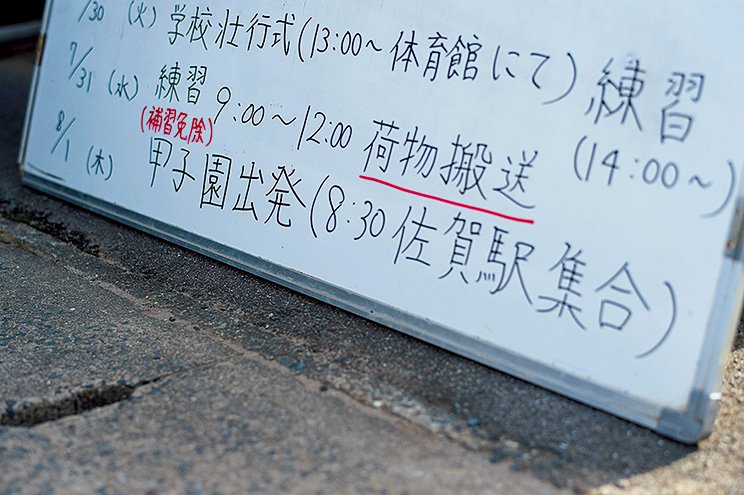 /30 (火) 学校壮行式(13:00～体育館にて) 練習(14:00～)
7/31 (水) 練習 9:00～12:00 荷物搬送
(補習免除)
8/1 (木) 甲子園出発(8:30 佐賀駅集合)